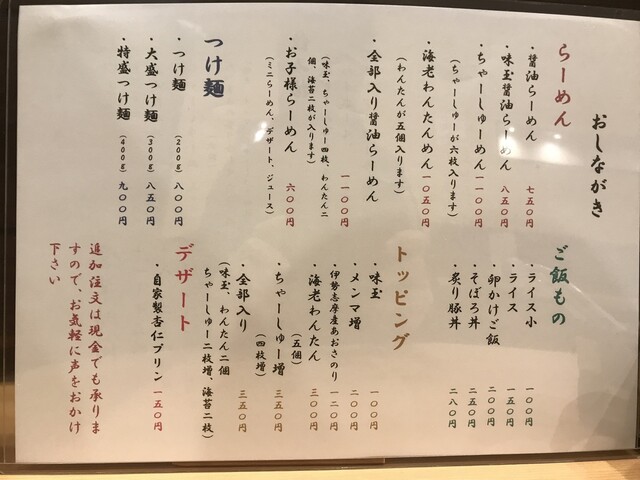 おしながき
らーめん
・醤油らーめん 七五〇円
・味玉醤油らーめん 八五〇円
・ちゃーしゅーめん 一一〇〇円
(ちゃーしゅーが六枚入ります)
・海老わんたんめん 一〇五〇円
(わんたんが五個入ります)
・全部入り醤油らーめん 一一〇〇円
(味玉、ちゃーしゅー四枚、わんたん二
個、海苔二枚が入ります)
・お子様らーめん 六〇〇円
(ミニらーめん、デザート、ジュース)
つけ麺
・つけ麺 (200g) 八〇〇円
・大盛つけ麺 (300g) 八五〇円
・特盛つけ麺 (400g) 九〇〇円
ご飯もの
・ライス小 一〇〇円
・ライス 一五〇円
・卵かけご飯 二〇〇円
・そぼろ丼 二五〇円
・炙り豚丼 二八〇円
トッピング
・味玉 一〇〇円
・メンマ増 二〇〇円
・伊勢志摩産あおさのり 一二〇円
・海老わんたん 三〇〇円
(五個)
・ちゃーしゅー増 三五〇円
(四枚増)
・全部入り 三五〇円
(味玉、わんたん二個
ちゃーしゅー二枚増、海苔二枚)
デザート
・自家製杏仁プリン 一五〇円
追加注文は現金でも承りま
すので、お気軽に声をおかけ
下さい